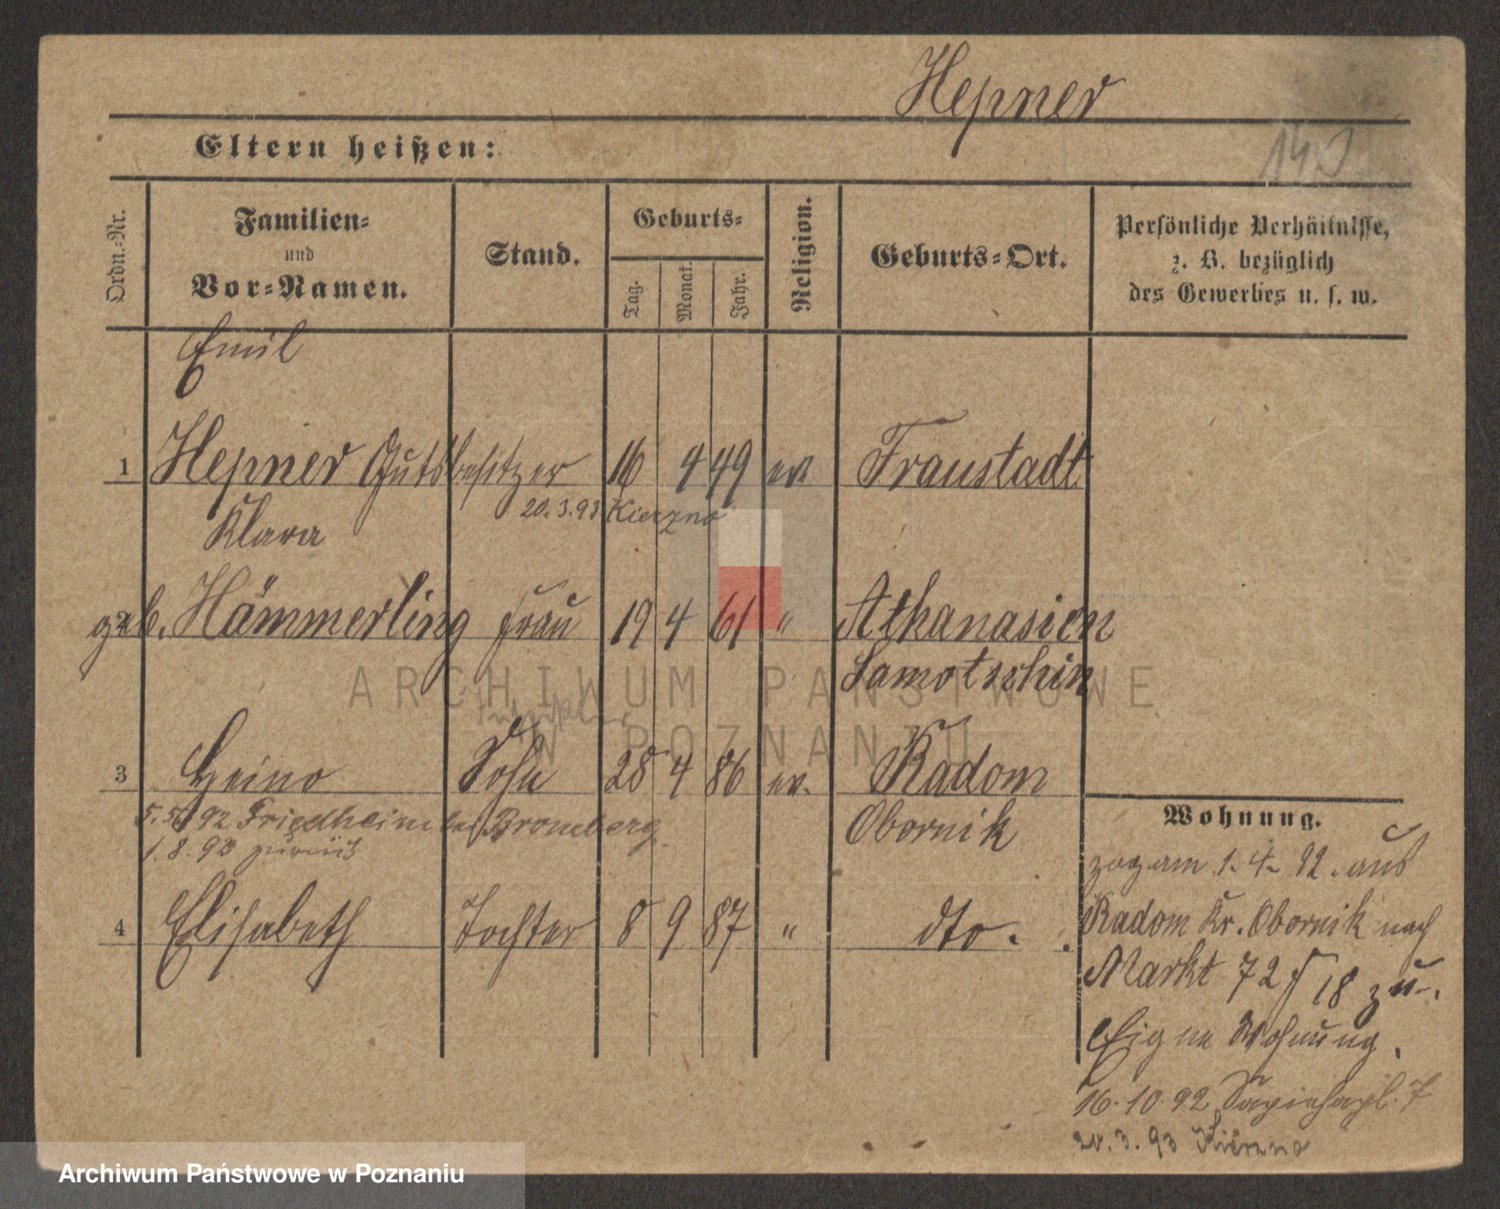 Hepner
140
Eltern heißen:
Ordn.-Nr.
Familien-
und
Vor-Namen.
Stand.
Geburts-
Tag.
Monat.
Jahr.
Religion.
Geburts-Ort.
Persönliche Verhältnisse,
z. B. bezüglich
des Gewerbes u. s. w.
Emil
1 Hepner Gutsbesitzer 16 4 49 ev. Fraustadt
20.3.93 Kierzno
Klara
2 geb. Hämmerling Frau 19 4 61 " Athanasien
Samotschin
3 Heino Sohn 28 4 86 ev. Radom
5.5.92 Friedheim bei Bromberg
1.8.92 zurück
Obornik
4 Elisabeth Tochter 8 9 87 " dto.
Wohnung.
zog am 1.4.92. aus
Radom Kr. Obornik nach
Markt 72 18 zu.
Eigne Wohnung.
16.10.92 Sapiehapl. 7
20.3.93 Kierzno
ARCHIWUM PAŃSTWOWE
W POZNANIU
Archiwum Państwowe w Poznaniu